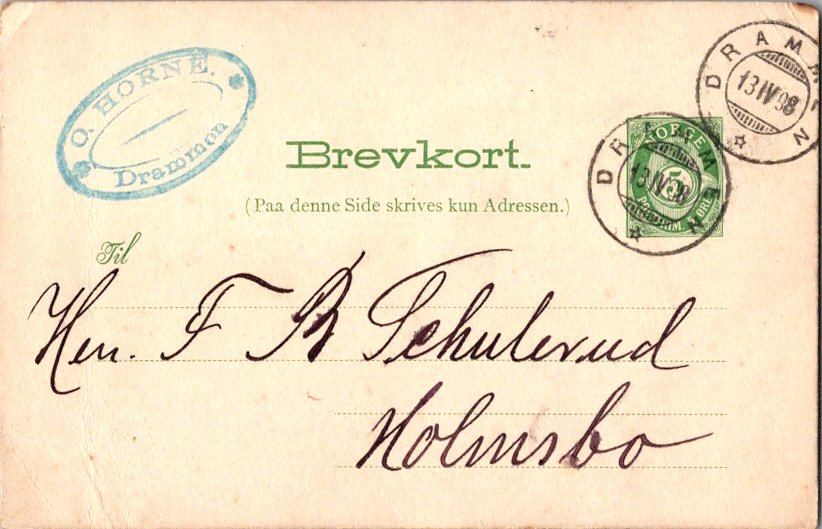 O. HORNE.
Drammen
DRAMMEN
13 IV 98
DRAMMEN
13 IV 98
NORGE
5
Brevkort.
(Paa denne Side skrives kun Adressen.)
Til
Herr. F B Schulerud
Holmsbo